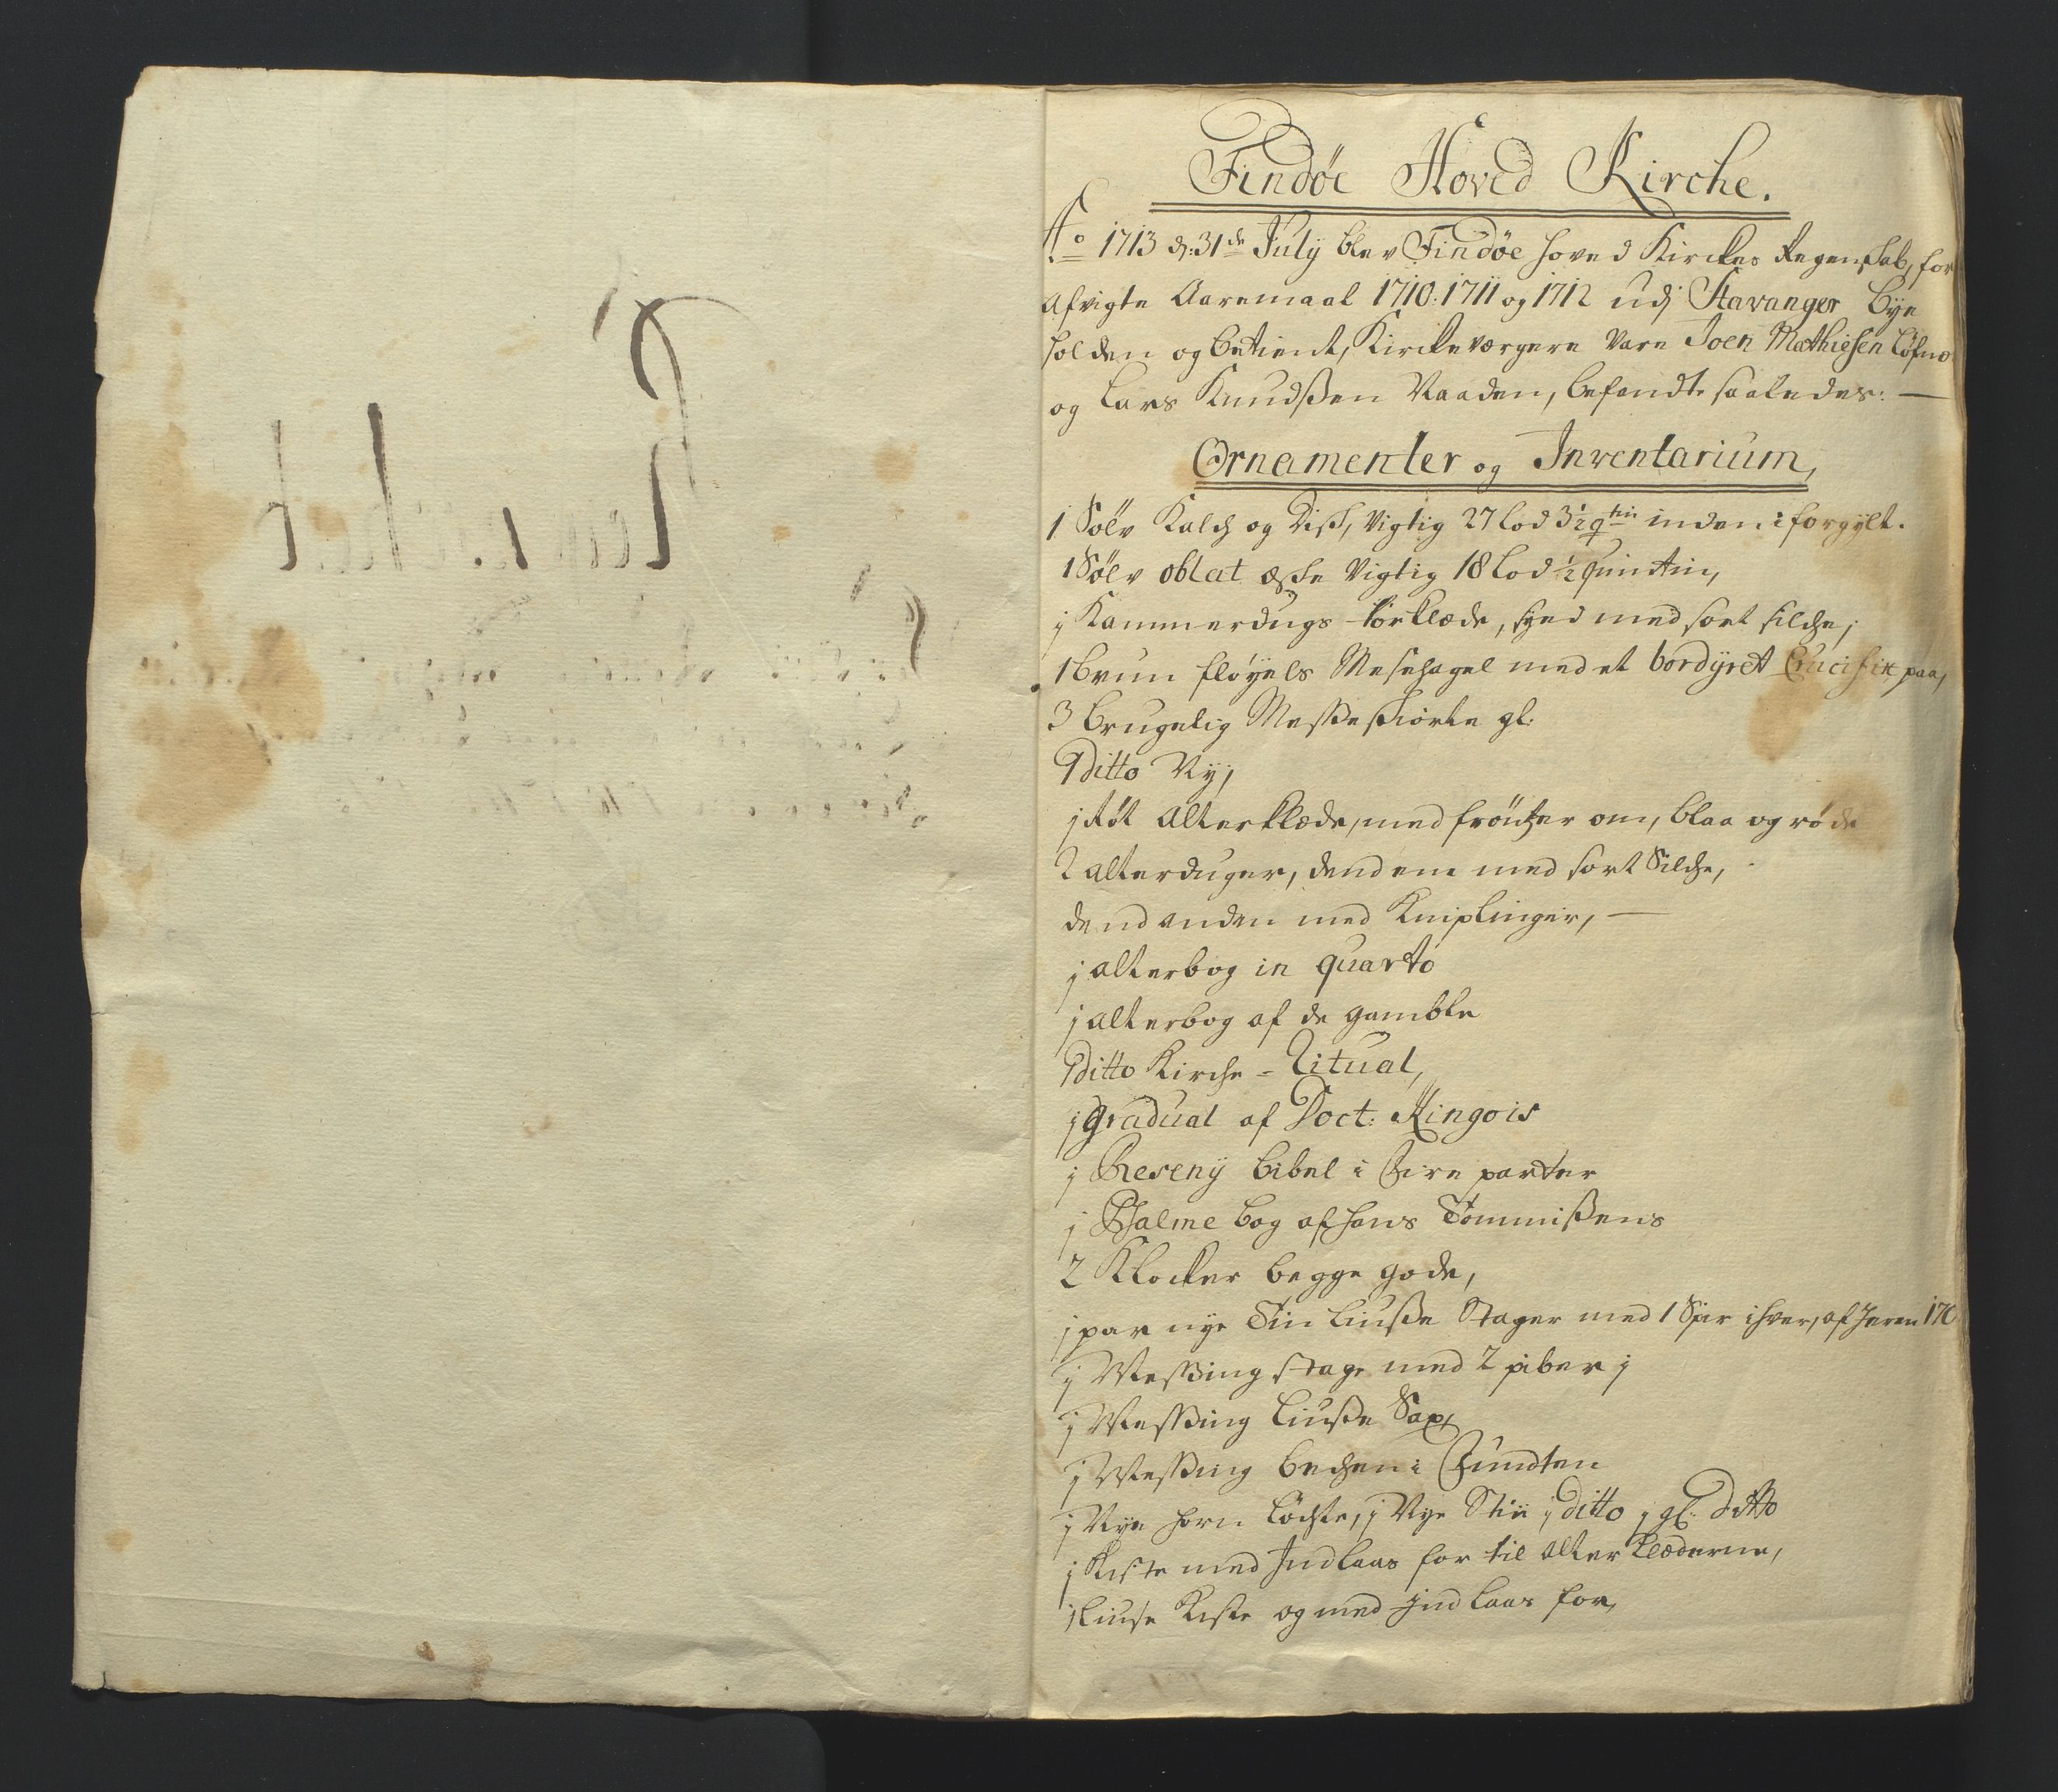 Findøe Hoved Kirche.
Ao 1713 d: 31de Julÿ blev Findøe hoved Kirckes Regenskab, for
afvigte Aaremaal 1710. 1711 og 1712 udj Stavanger Bye
holden og betient, Kirckeværgere vare Joen Mathiesen
og Lars Knudssen Naaden, befandt saaledes: —
Ornamenter og Inventarium,
1 Sølv Kalch og Disk, Vigtig 27 lod 3½ qtin inden i forgÿlt.
1 Sølv oblat æske Vigtig 18 Lod ½ quintin,
j Kammerdugs tørklæde, syed med sort silche,
1 brun fløÿels Messehagel med et bordÿret Crucifix paa,
3 brugelig Messeskiorte gl:
1 ditto Nÿ,
j Røt Alterklæde, med frøntzer om, blaa og røde
2 alterduger, dend ene med sort Silche,
dend anden med Kniplinger, —
j alterbog in quarto
j alterbog af de gamble
1 ditto Kirche-Ritual,
j gradual af Doct: Kingois
j Resenÿ bibel i Fire parter
j Psalme bog af Hans Tommissens
2 Klocker begge gode,
j par nye Tin Liusse Stager med 1 Spir i hver, af Jeren 170
j Messing stage med 2 piber j
j Messing Liusse Sax,
j Messing bechen i Fundten
j Nye horn Løchte, j Nye Stii j ditto j gl: ditto
j Kiste med Indlaas for til alter Klæderne,
j Liuse Kiste og med jndlaas for,